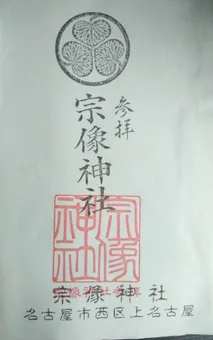 参拝
宗像神社
宗像
神社
宗像神社
名古屋市西区上名古屋